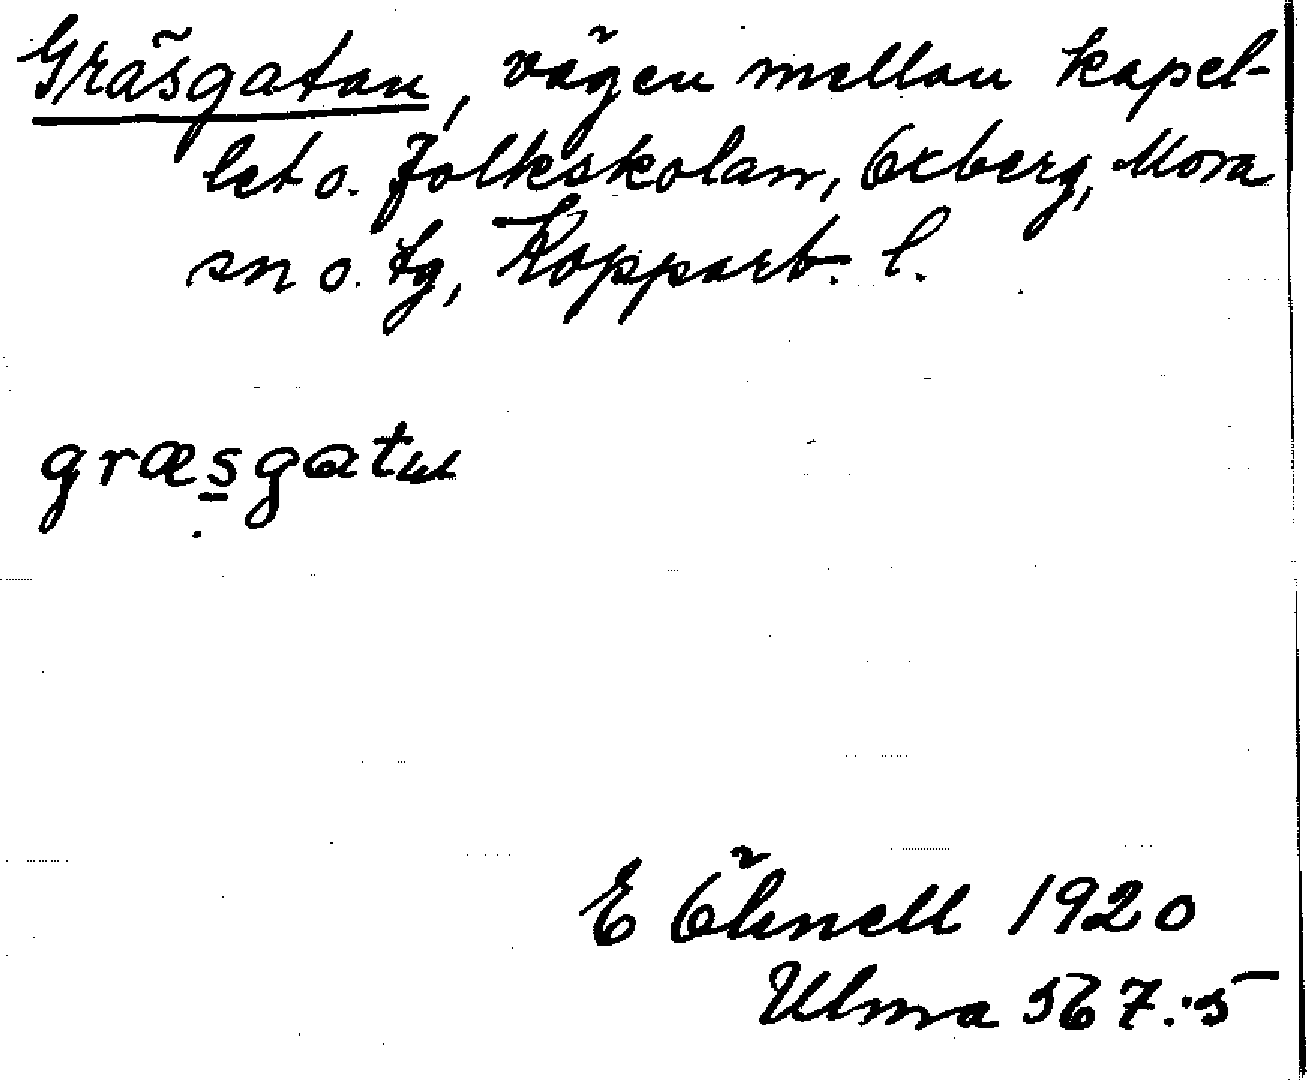 Gräsgatan, vägen mellan kapel-
let o. folkskolan, Oxberg, Mora
sn o. tg, Kopparb. l.
græs̲gatu
E Öhnell 1920
Ulma 367.:5